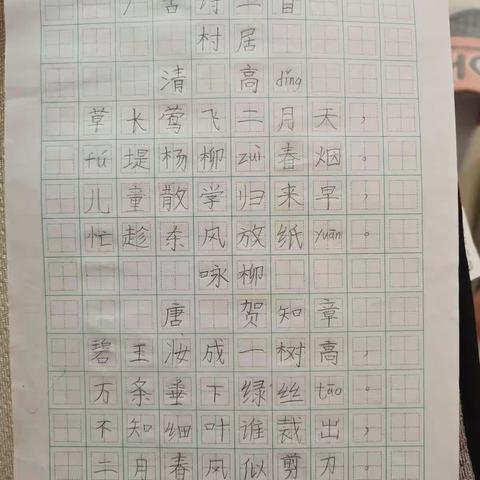 村居
清 高dǐng
草长莺飞二月天，
fú堤杨柳zuì春烟。
儿童散学归来早，
忙趁东风放纸yuān。
咏柳
唐 贺知章
碧玉汝成一树高，
万条垂下绿丝tāo。
不知细叶谁裁出，
二月春风似剪刀。